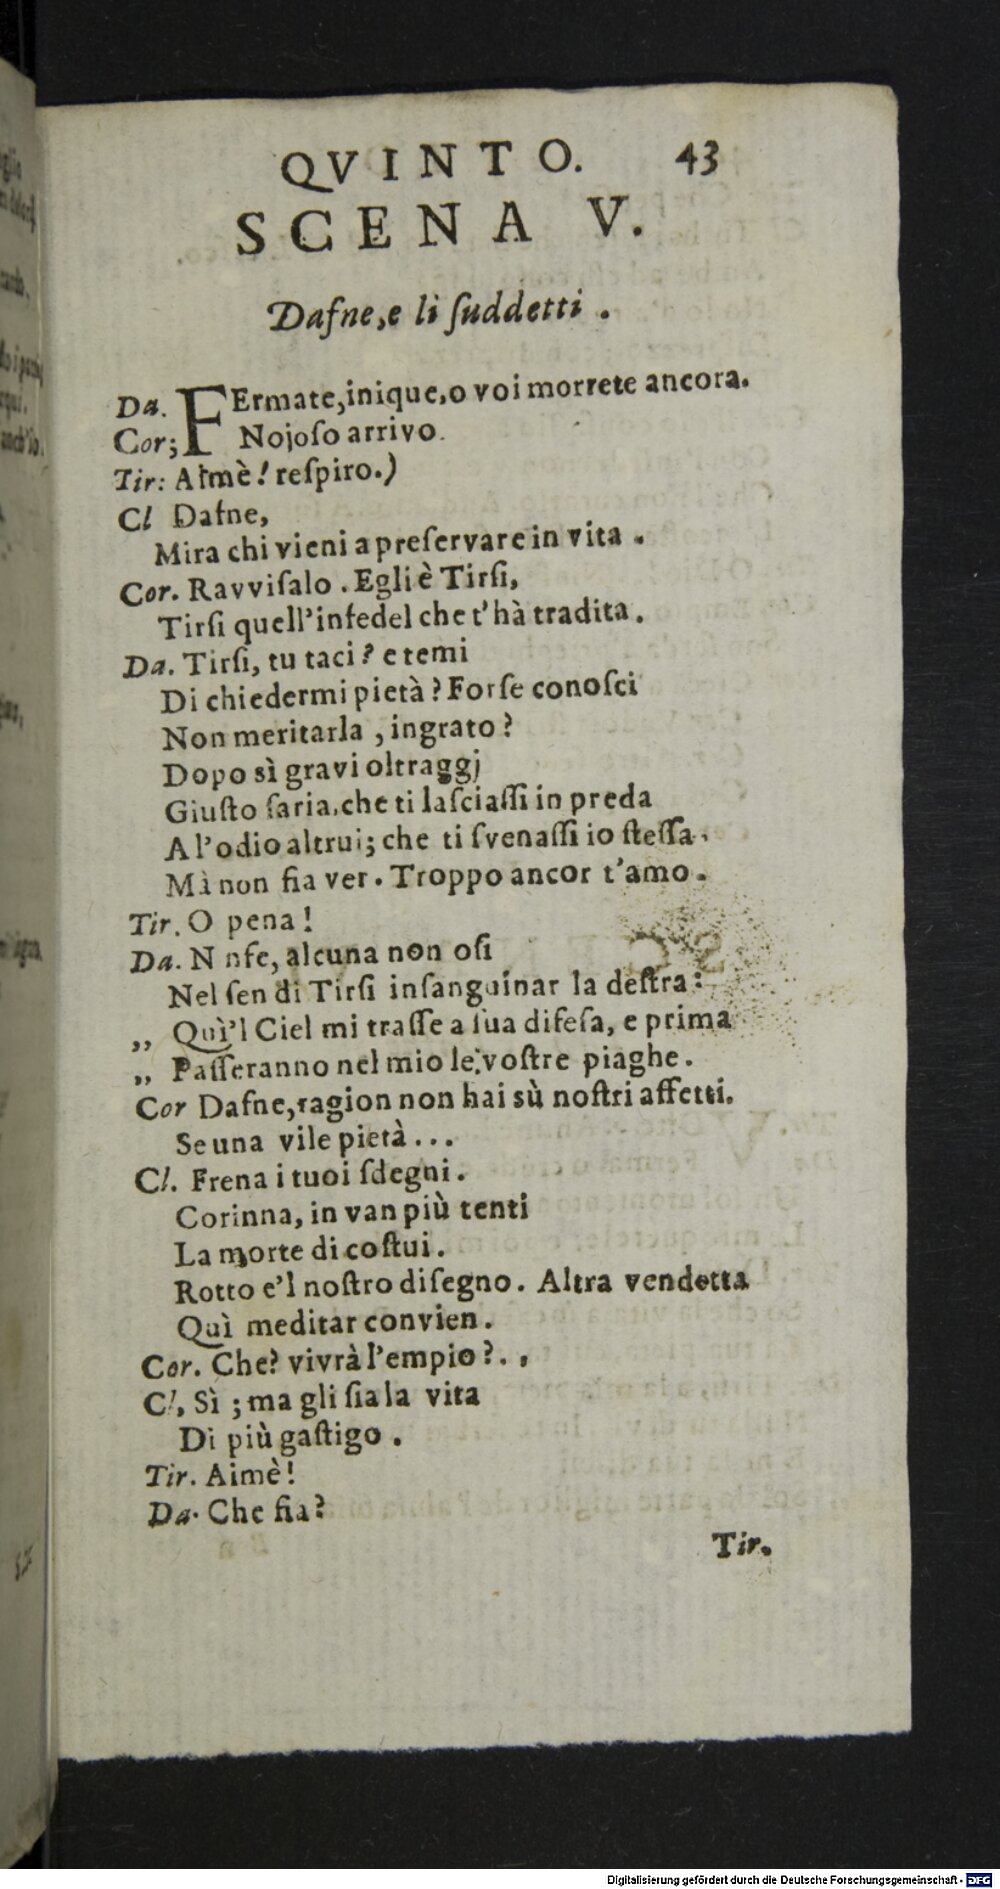 QVINTO. 43
SCENA V.
Dafne, e li ſuddetti.
Da. FErmate, inique, o voi morrete ancora.
Cor; Nojoſo arrivo.
Tir: Aimè! reſpiro.)
Cl Dafne,
Mira chi vieni a preſervare in vita.
Cor. Ravviſalo. Egli è Tirſi,
Tirſi quell'infedel che t'hà tradita.
Da. Tirſi, tu taci? e temi
Di chiedermi pietà? Forſe conoſci
Non meritarla, ingrato?
Dopo sì gravi oltraggj
Giuſto ſaria, che ti laſciaſſi in preda
A l'odio altrui; che ti ſvenaſſi io ſteſſa.
Mà non fia ver. Troppo ancor t'amo.
Tir. O pena!
Da. N nfe, alcuna non oſi
Nel ſen di Tirſi inſanguinar la deſtra:
,, Quì'l Ciel mi traſſe a ſua difeſa, e prima
,, Paſſeranno nel mio le voſtre piaghe.
Cor Dafne, ragion non hai sù noſtri affetti.
Se una vile pietà...
Cl. Frena i tuoi ſdegni.
Corinna, in van più tenti
La morte di coſtui.
Rotto e'l noſtro diſegno. Altra vendetta
Quì meditar convien.
Cor. Che? vivrà l'empio?..
Cl, Sì; ma gli ſia la vita
Di più gaſtigo.
Tir. Aimè!
Da. Che fia?
Tir.
Digitalisierung gefördert durch die Deutsche Forschungsgemeinschaft - DFG